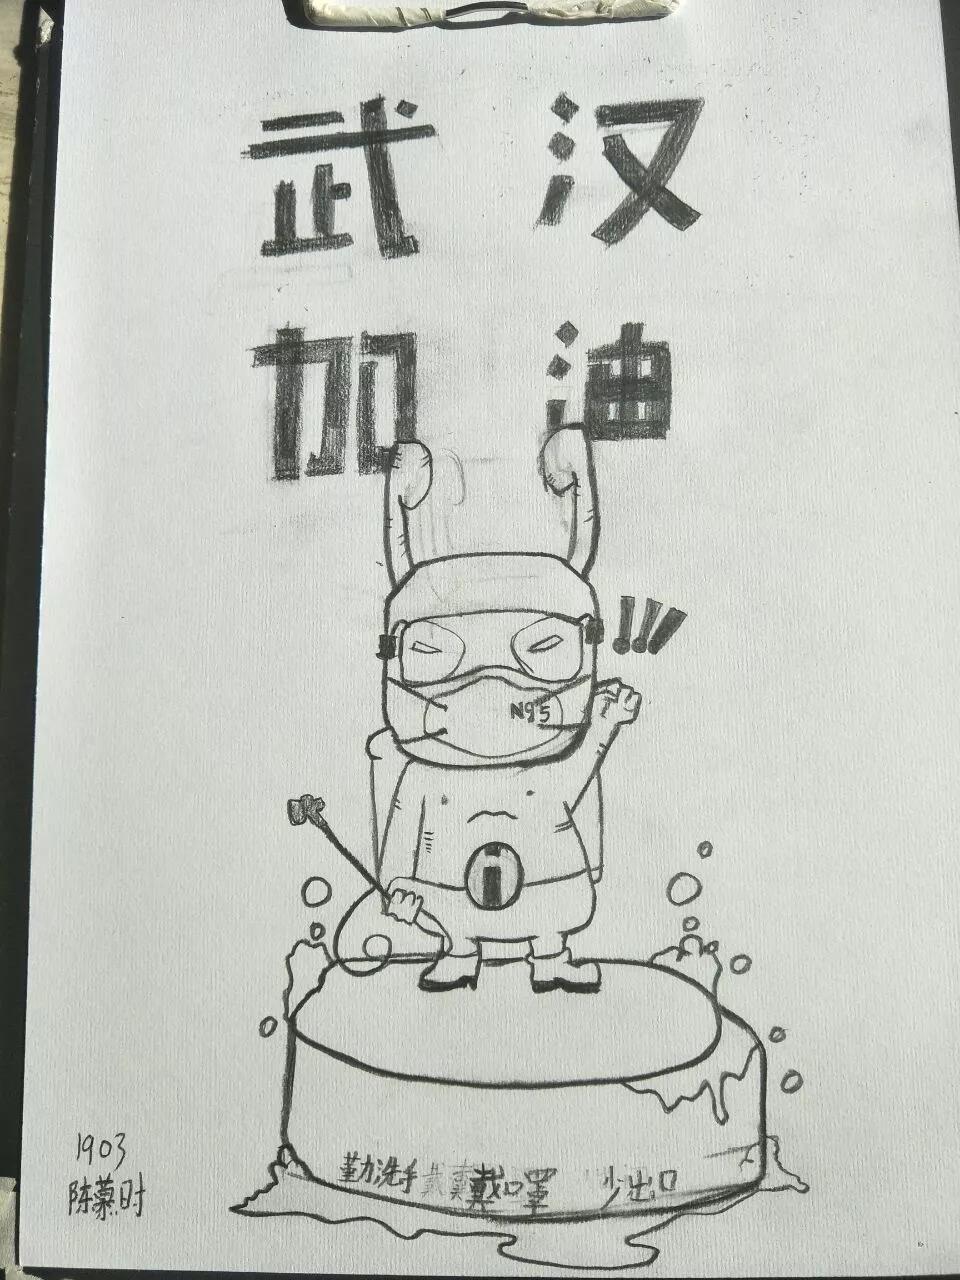 武汉
加油
!!!
N95
勤洗手 戴口罩 少出口
1903
陈慕时